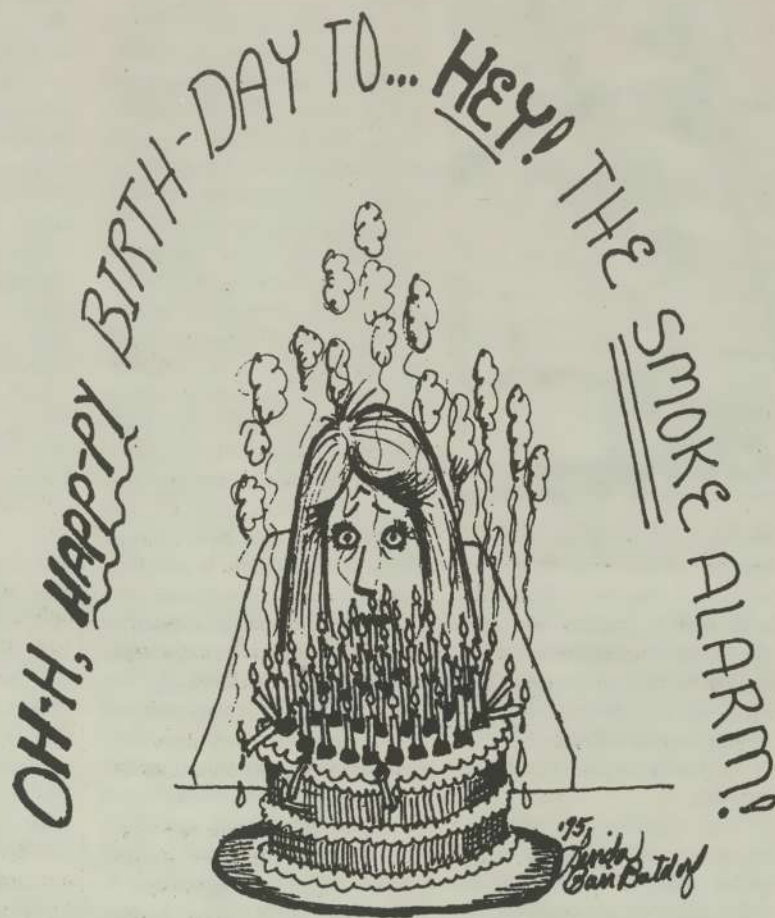 OH-H, HAPP-PY BIRTH-DAY TO... HEY! THE SMOKE ALARM!
'95
Linda